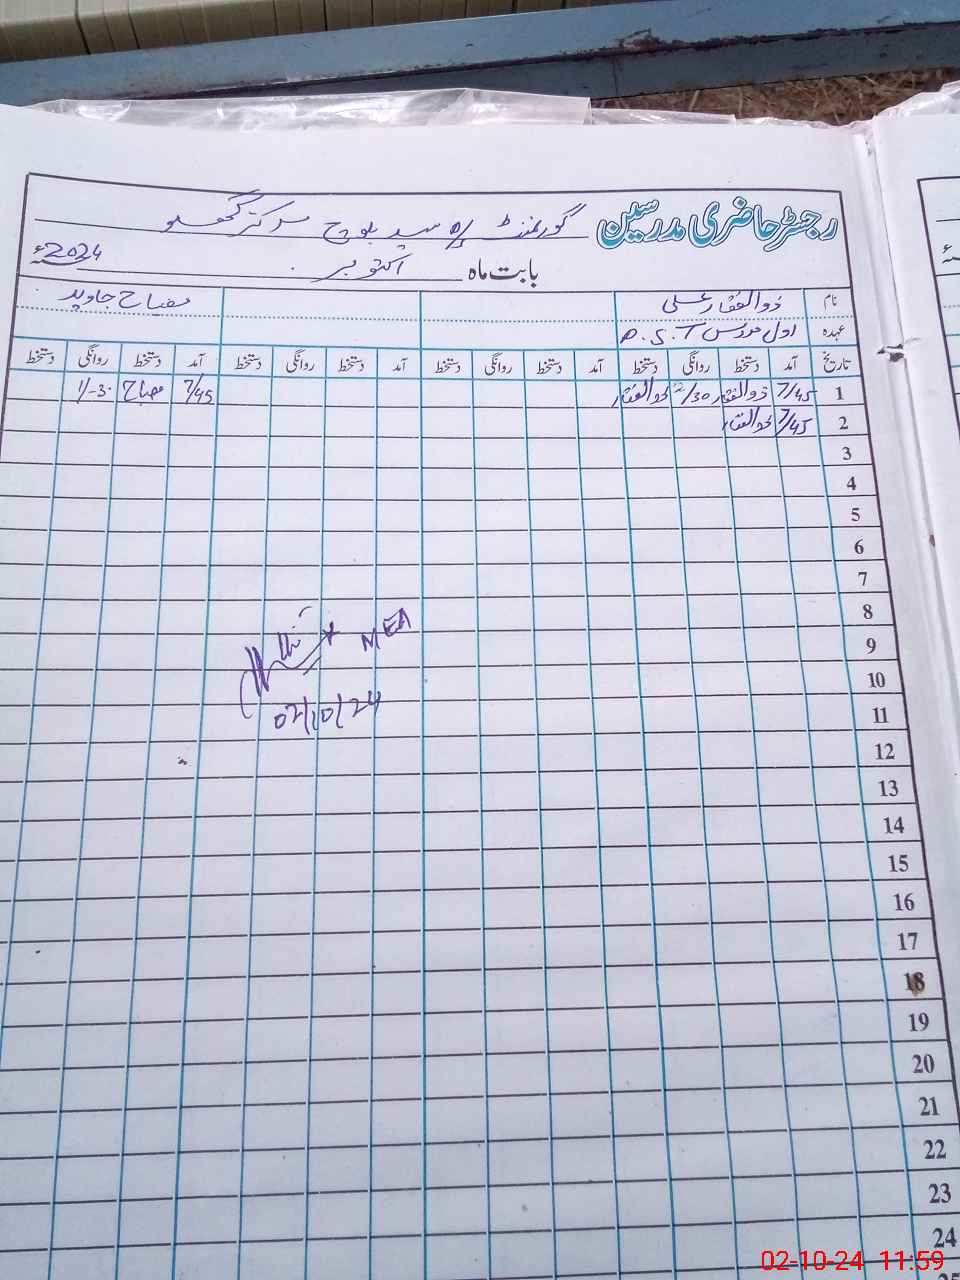 رجسٹر حاضری مدرسین گورنمنٹ بلوچ
بابت ماہ اکتوبر 2024ء
نام ذوالفقار علی مصباح جاوید
عہدہ اول مدرس P.S.T
تاریخ آمد دستخط روانگی دستخط آمد دستخط روانگی دستخط آمد دستخط روانگی دستخط آمد دستخط روانگی دستخط
1 7/45 ذوالفقار 2/30 ذوالفقار 7/45 مصباح 1/-30
2 7/45 ذوالفقار
3
4
5
6
7
8
9
MEA
10
02/10/24
11
12
13
14
15
16
17
18
19
20
21
22
23
24
02-10-24 11:59